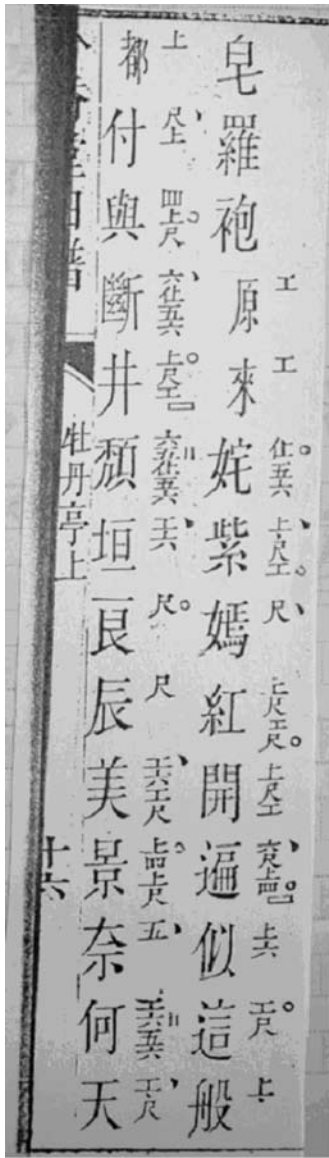 皂羅袍原來姹紫嫣紅開遍似這般
工 工 仩五六 上尺工 尺 上尺工尺 上尺工 上六 工尺 上
都付與斷井頹垣良辰美景奈何天
上 尺上 四上尺 六仩五六 上尺工 六仩五六 工六 尺 尺 工六工尺 上四上尺 五 工尺
牡丹亭上
十六